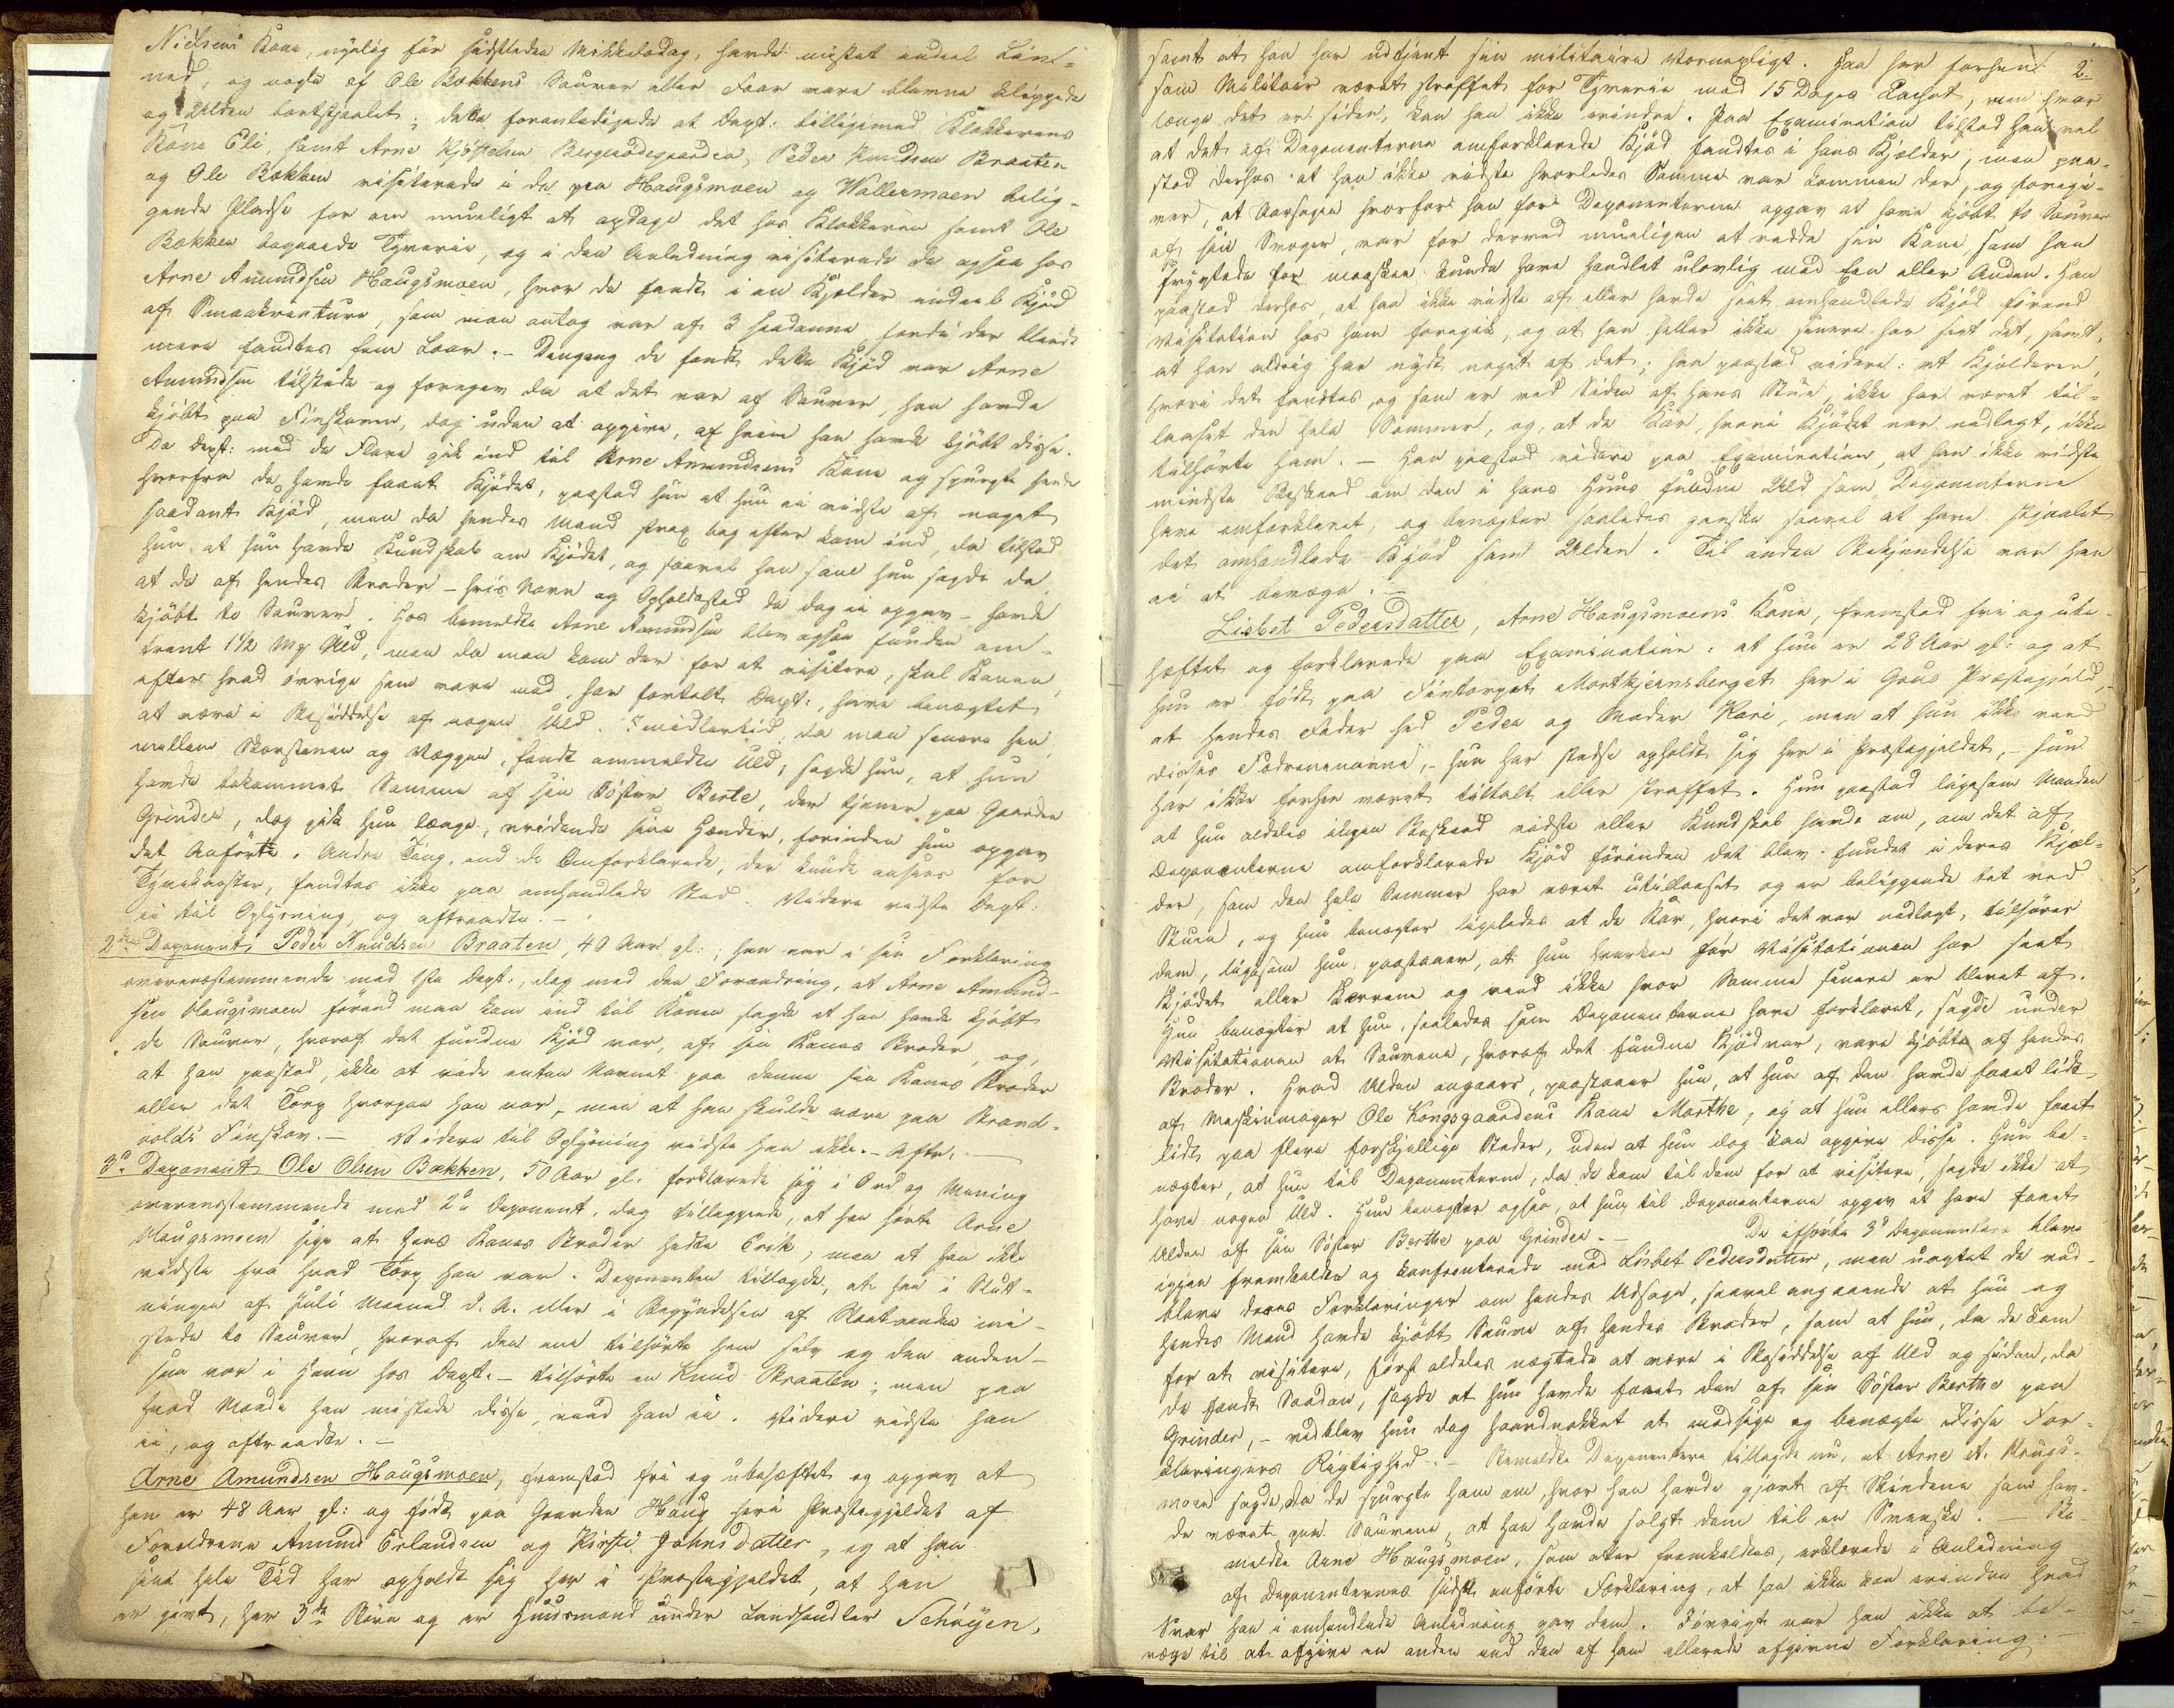 Nielsens Kone, nylig før sidstleden Mikkelsdag, havde mistet endeel Lin-
ned, og nogle af Ole Bækkens Sauver eller Faar vare blevne klippede
og Ulden bortstjaalet; dette foranledigede at Dept. tilligemed Klokkerens
Kone Eli, samt Arne Kjøstelsen Bergersødegaarden, Peder Knudsen Braaten
og Ole Bækken visiterede i de paa Haugsmoen og Wallermoen belig-
gende Pladse for om mueligt at opdage det hos Klokkeren samt Ole
Bækken begaaede Tyverie, og i den Anledning visiterede de ogsaa hos
Arne Amundsen Haugsmoen, hvor de fandt i en Kjelder endeel Kjød
af Smaakreature, som man antog var af 3 saadanne fordi der blandt
mere fandtes fem Laar. – Dengang de fandt dette Kjød var Arne
Amundsen tilstede og foregav da at det var af Sauver, han havde
kjøbt paa Finskoven, dog uden at opgive, af hvem han havde kjøbt disse.
Da Dept: med de Flere gik ind til Arne Amundsens Kone og spurgte hende
hvorfra de havde faaet Kjødet, paastod hun at hun ei vidste af noget
saadant Kjød, men da hendes Mand strax bag efter kom ind, da tilstod
hun at hun havde Kundskab om Kjødet, og saavel han som hun sagde da
at de af hendes Broder – hvis Navn og Opholdssted de dog ei opgav – havde
kjøbt to Sauver. Hos bemeldte Arne Amundsen blev ogsaa funden om-
trent 1½ Mk Uld, men da man kom der for at visitere, skal Konen,
efter hvad øvrige som vare med, har fortalt Dept:, have benægtet
at være i Besiddelse af nogen Uld. Imidlertid, da man senere hen,
mellem Skorstenen og Væggen, fandt ommeldte Uld, sagde hun, at hun
havde bekommet Samme af sin Søster Berte, der tjener paa Gaarden
Grinder, dog gik hun længe, vridende sine Hænder, forinden hun opgav
det Anførte. Andre Ting, end de Omforklarede, der kunde ansees for
Tyvekoster, fandtes ikke paa omhandlede Sted. Videre vidste Dept:
ei til Oplysning, og aftraadte. –
2den Deponent Peder Knudsen Braaten, 40 Aar gl:; han var i sin Forklaring
overensstemmende med 1ste Dept., dog med den Forandring, at Arne Amund-
sen Haugsmoen førend man kom ind til Konen sagde at han havde kjøbt
de Sauver, hvoraf det fundne Kjød var, af sin Kones Broder, og,
at han paastod, ikke at vide enten Navnet paa denne sin Kones Broder
eller det Torp hvorpaa han var, men at han skulde være paa Brand-
volds Finskov. – Videre til Oplysning vidste han ikke. – Aftr. –
3die Deponent Ole Olsen Bækken, 50 Aar gl. forklarede sig i Ord og Mening
overensstemmende med 2den Deponent, dog tillæggende, at han hørte Arne
Haugsmoen sige at hans Kones Broder hedte Erik, men at han ikke
vidste fra hvad Torp han var. Deponenten tillagde, at han i Slut-
ningen af Juli Maaned d. A. eller i Begyndelsen af Slaataanden mi-
stede to Sauver, hvoraf den ene tilhørte ham selv og den anden –
som var i Havn hos Dept. – tilhørte en Knud Braaten; men paa
hvad Maade han mistede disse, veed han ei. Videre vidste han
ei, og aftraadte. –
Arne Amundsen Haugsmoen, fremstod fri og ubehæftet og opgav at
han er 48 Aar gl: og født paa Gaarden Haug heri Præstegjeldet af
Forældrene Amund Erlandsen og Kirsti Johnsdatter, og at han
sin hele Tid har opholdt sig her i Præstegjeldet, at han
er givt, har 3de Børn og er Huusmand under Landhandler Schøyen,
2.
samt at han har udtjent sin militaire Værnepligt. Han har forhen
som Militair været straffet for Tyverie med 15 Dages Arrest, men hvor
længe det er siden, kan han ikke erindre. Paa Examination tilstod han vel
at det af Deponenterne omforklarede Kjød fandtes i hans Kjelder, men paa-
stod derhos at han ikke vidste hvorledes Samme var kommen der, og foregi-
ver, at Aarsagen hvorfor han for Deponenterne opgav at have kjøbt to Sauver
af sin Svoger, var for derved mueligen at redde sin Kone som han
frygtede for maaskee kunde have handlet ulovlig med Een eller Anden. Han
paastod derhos, at han ikke vidste af eller havde seet omhandlede Kjød førend
Visitation hos ham foregik, og at han heller ikke senere har seet det, samt,
at han aldrig har nydt noget af det; han paastod videre: at Kjelderen,
hvori det fandtes, og som er ved Siden af hans Stue, ikke har været til-
laaset den hele Sommer, og, at de Kar, hvori Kjødet var nedlagt, ikke
tilhørte ham. – Han paastod videre paa Examination, at han ikke vidste
mindste Beskeed om den i hans Huus fundne Uld som Deponenterne
have omforklaret, og benægter saaledes ganske saavel at have stjaalet
det omhandlede Kjød som Ulden. Til anden Bekjendelse var han
ei at bevæge. –
Lisbet Pedersdatter, Arne Haugsmoens Kone, fremstod fri og ube-
hæftet og forklarede paa Examination: at hun er 28 Aar gl: og at
hun er født paa Fintorpet Mortkjernsberget her i Grue Præstegjeld,
at hendes Fader hed Peder og Moder Kari, men at hun ikke veed
disses Fødrenenavne, – hun har stedse opholdt sig her i Præstegjeldet, – hun
har ikke forhen været tiltalt eller straffet. Hun paastod ligesom Manden
at hun aldeles ingen Beskeed vidste eller Kundskab havde om, om det af
Deponenterne omforklarede Kjød førinden det blev fundet i deres Kjel-
der, som den hele Sommer har været utillaaset og er beliggende tæt ved
Stuen, og hun benægter ligeledes at de Kar, hvori det var nedlagt, tilhører
dem, ligesom hun paastaaer, at hun hverken før Visitationen har seet
Kjødet eller Karrene og veed ikke hvor Samme senere er blevet af.
Hun benægter at hun, saaledes som Deponenterne have forklaret, sagde under
Visitationen at Sauvene, hvoraf det fundne Kjød var, vare kjøbte af hendes
Broder. Hvad Ulden angaaer, paastaaer hun, at hun af den havde faaet lidt
af Maskinmager Ole Kongsgaardens Kone Marthe, og at hun ellers havde faaet
lidt paa flere forskjellige Steder, uden at hun dog kan opgive disse. Hun be-
nægter, at hun til Deponenterne, da de kom til dem for at visitere, sagde ikke at
have nogen Uld. Hun benægter ogsaa, at hun til Deponenterne opgav at have faaet
Ulden af sin Søster Berthe paa Grinder. – De afhørte 3de Deponentere bleve
igjen fremkaldte og confronterede med Lisbet Pedersdatter, men uagtet de ved-
bleve deres Forklaringer om hendes Udsagn, saavel angaaende at hun og
hendes Mand havde kjøbt Sauve af hendes Broder, som at hun, da de kom
for at visitere, først aldeles nægtede at være i Besiddelse af Uld og siden, da
de fandt Saadan, sagde at hun havde faaet den af sin Søster Berthe paa
Grinder, – vedblev hun dog haardnakket at modsige og benægte disse For-
klaringers Rigtighed. – Bemeldte Deponentere tillagde nu, at Arne A. Haugs-
moen sagde, da de spurgte ham om, hvor han havde gjort af Skindene som hav-
de været paa Sauvene, at han havde solgt dem til en Svenske. – Be-
meldte Arne Haugsmoen, som atter fremkaldtes, erklærede i Anledning
af Deponenternes sidst anførte Forklaring, at han ikke kan erindre hvad
Svar han i omhandlede Anledning gav dem. Iøvrigt var han ikke at be-
væge til at afgive en anden end den af ham allerede afgivne Forklaring.